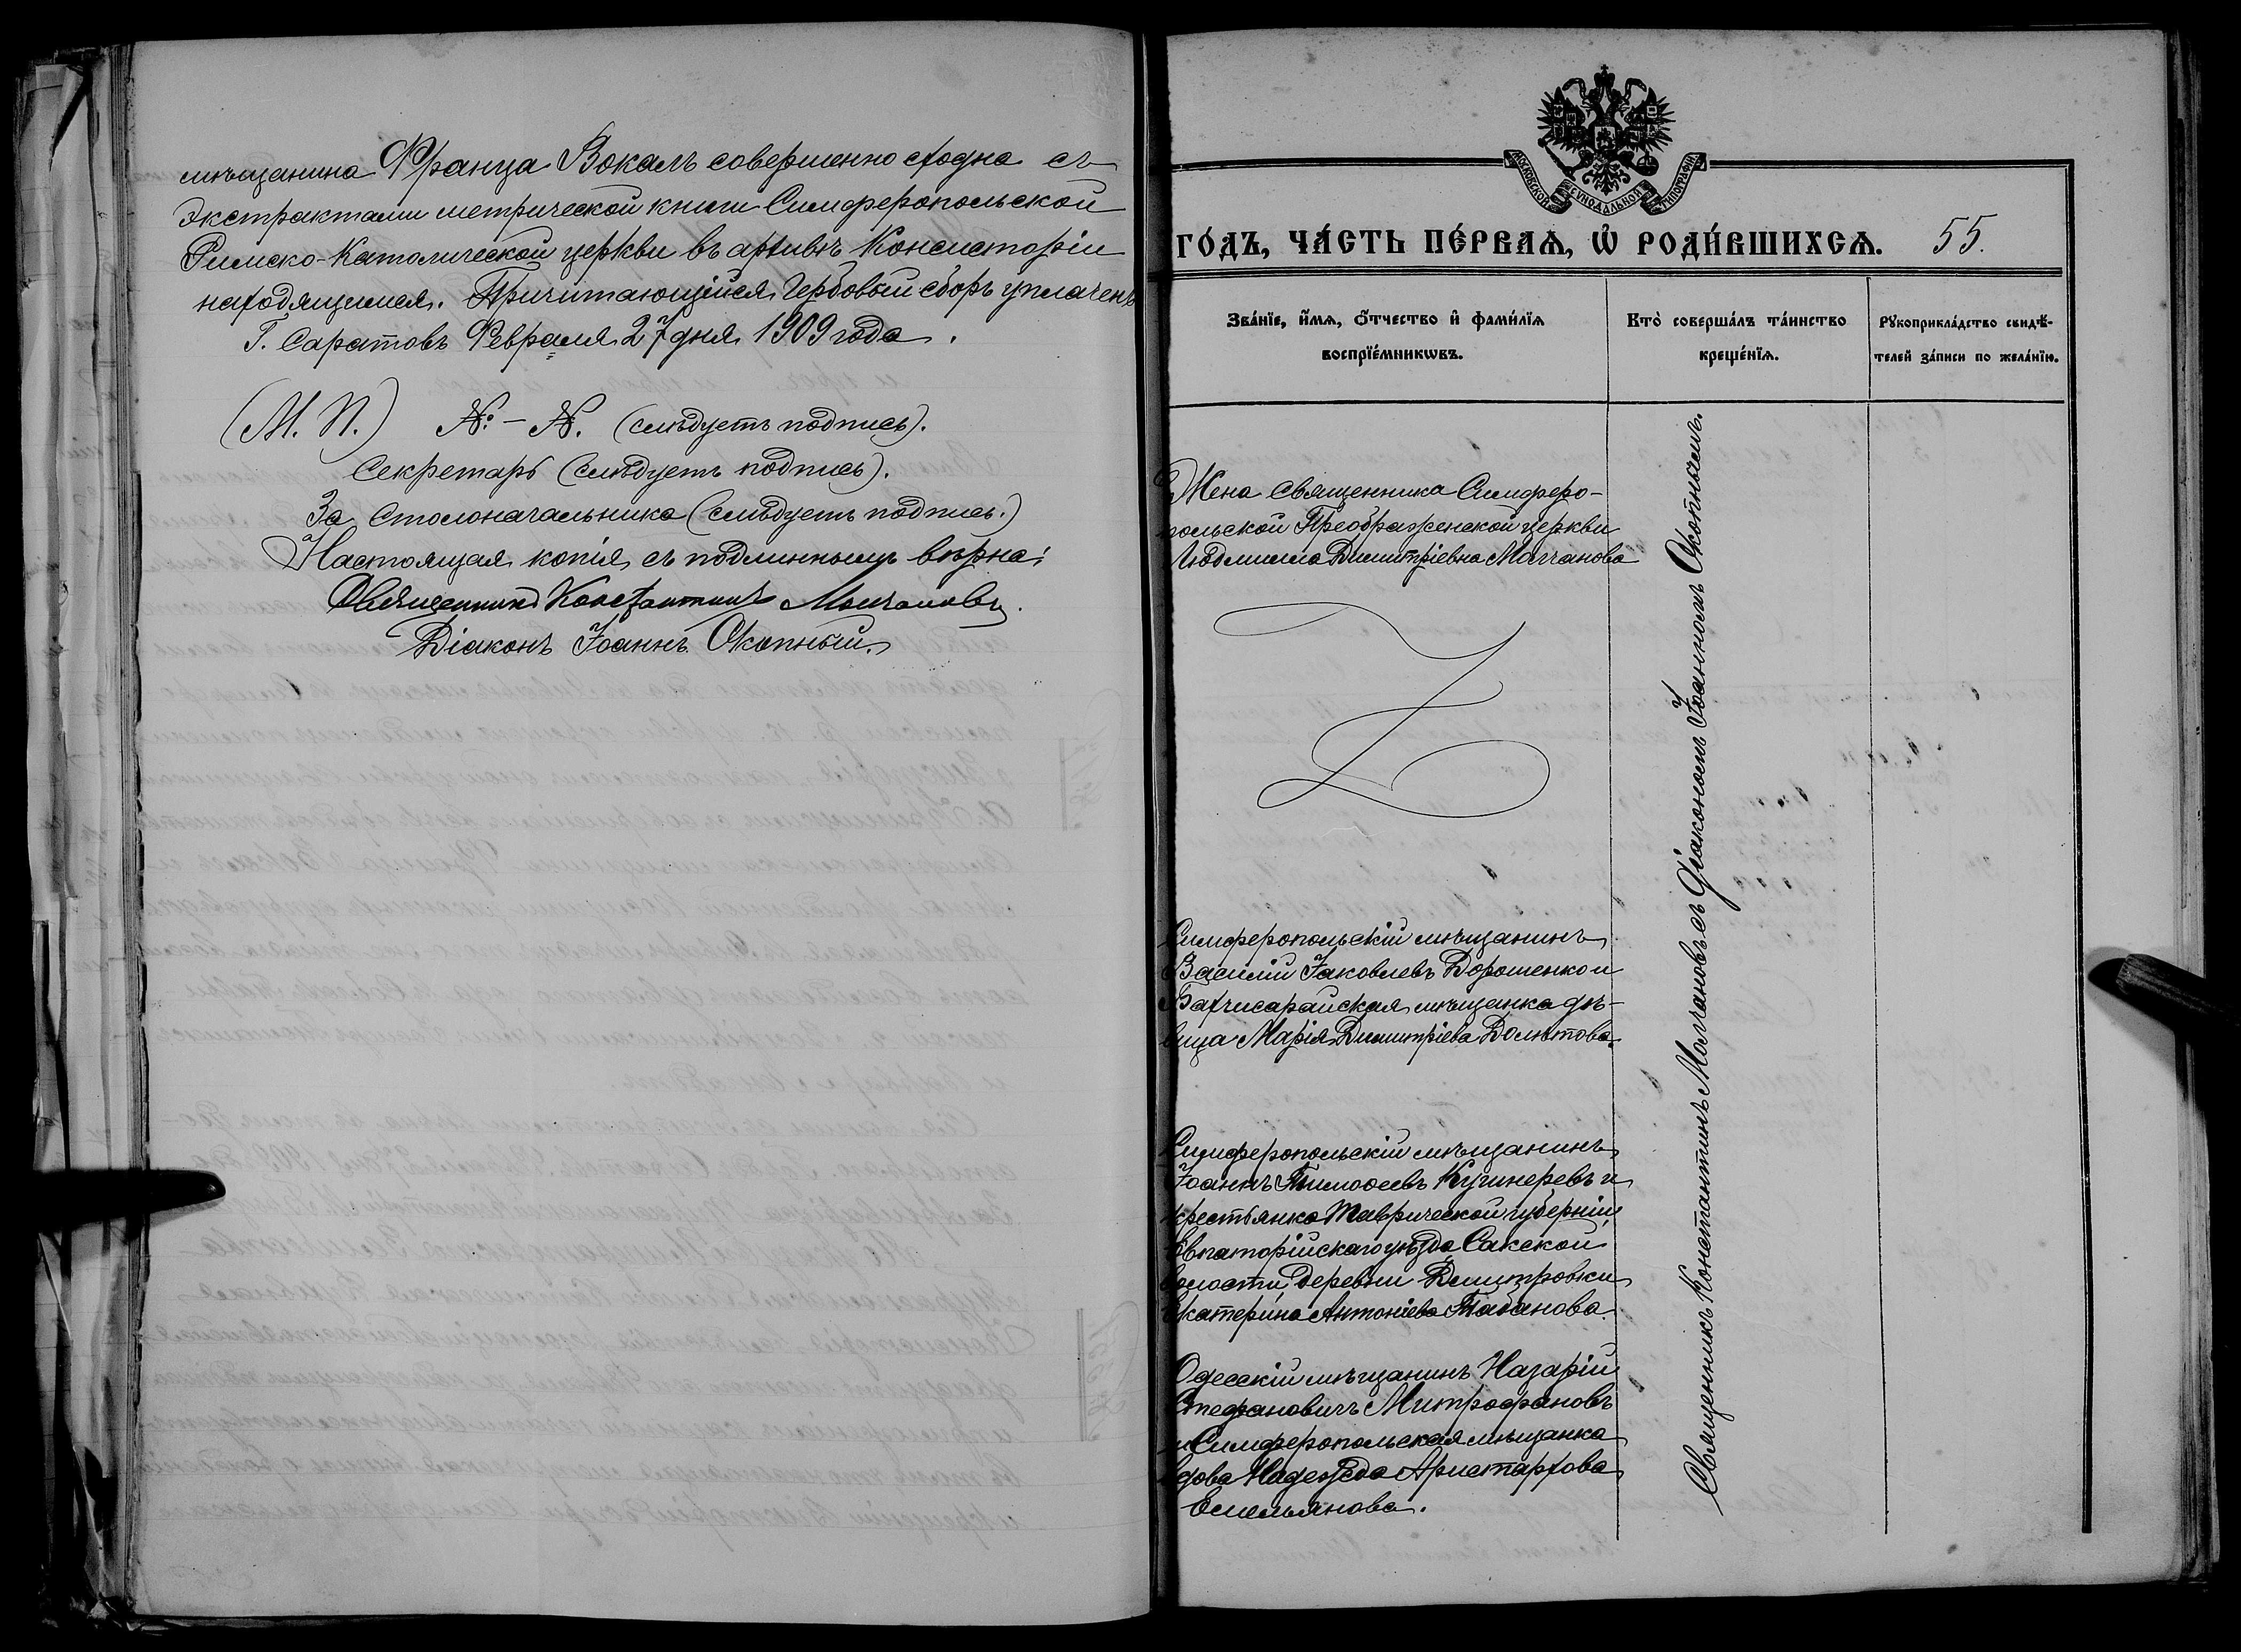 мѣщанина Франца Вокалъ совершенно сходна съ
экстрактами метрической книги Симферопольской
Римско-Католической церкви въ архивѣ Консисторіи
находящимся. Причитающійся гербовый сборъ уплаченъ
Г. Саратовъ Февраля 27 дня 1909 года.
(М. П.) N. – N. (слѣдуетъ подпись).
Секретарь (слѣдуетъ подпись).
За Столоначальника (слѣдуетъ подпись.)
Настоящая копія съ подлиннымъ вѣрна:
Священникъ Константинъ Молчановъ.
Діаконъ Іоаннъ Окопный.
МОСКОВСКОЙ СѴНОДАЛЬНОЙ ТИПОГРАФІИ
ГО́ДЪ, ЧА́СТЬ ПЕ́РВАѦ, Ѡ҆ РОДИ́ВШИХСѦ. 55.
Зва́нїе, и҆́мѧ, ѻ҆́тчество и҆ фами́лїѧ
воспрїе́мникѡвъ.
Кто̀ соверша́лъ та́инство
креще́нїѧ.
Рꙋкоприкла́дство свидѣ́-
телей за́писи по жела́нїю.
Жена священника Симферо-
польской Преображенской церкви
Людмила Димитріевна Молчанова
Симферопольскій мѣщанинъ
Василій Іаковлевъ Дорошенко и
Бахчисарайская мѣщанка дѣ-
вица Марія Димитріева Болѣтова.
Симферопольскій мѣщанинъ
Іоаннъ Тимоѳеевъ Кушнеревъ и
крестьянка Таврической губерніи
Евпаторійскаго уѣзда Сакской
волости, деревни Димитровки
Екатерина Антоніева Табанова.
Одесскій мѣщанинъ Назарій
Стефановичъ Митрофановъ
и Симферопольская мѣщанка
вдова Надежда Аристархова
Емельянова.
Священникъ Константинъ Молчановъ съ Діакономъ Іоанномъ Окопнымъ.